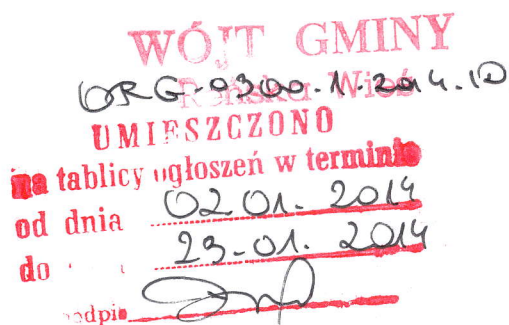 WÓJT GMINY
Reńska Wieś
ORG-0300.1.2014.ID
UMIESZCZONO
na tablicy ogłoszeń w terminie
od dnia 02.01.2014
do 23-01.2014
podpis